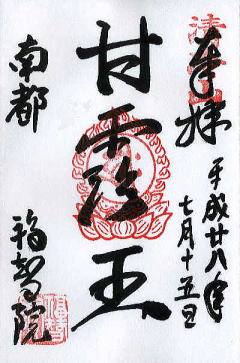 奉拝
平成廿八年
七月十五日
甘露王
南都
福智院